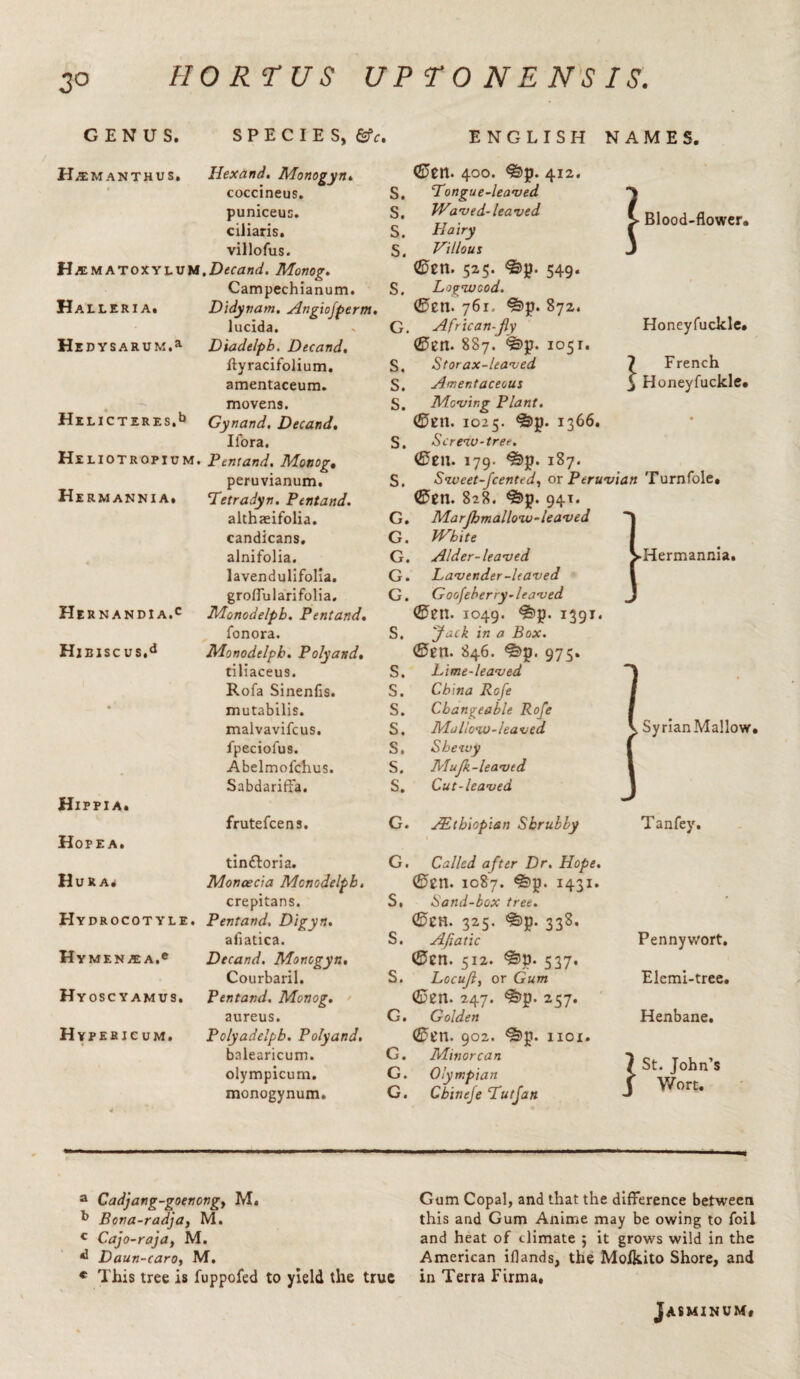 30 HORTUS UPTONENSIS.
GENUS. SPECIES, &c. ENGLISH NAMES.
HÆMANTHUS. Hexand. Monogyn. Gen. 400. Sp. 412.
coccineus. S. Tongue-leaved
puniceus. S. Waved-leaved
ciliaris. S. Hairy } Blood-flower.
villoſus. S. Villous
HÆMATOXYLUM. Decand. Monog. Gen. 525. Sp. 549.
Campechianum. S. Logwood.
HALLERIA. Didynam. Angioſperm. Gen. 761. Sp. 872.
lucida. G. African-fly Honeyſuckle.
HEDYSARUM.ᵃ Diadelph. Decand. Gen. 887. Sp. 1051.
ſtyracifolium. S. Storax-leaved } French
amentaceum. S. Amentaceous Honeyſuckle.
movens. S. Moving Plant.
HELICTERES.ᵇ Gynand. Decand. Gen. 1025. Sp. 1366.
Iſora. S. Screw-tree.
HELIOTROPIUM. Pentand. Monog. Gen. 179. Sp. 187.
peruvianum. S. Sweet-ſcented, or Peruvian Turnſole.
HERMANNIA. Tetradyn. Pentand. Gen. 828. Sp. 941.
althæifolia. G. Marſhmallow-leaved
candicans. G. White
alnifolia. G. Alder-leaved } Hermannia.
lavendulifolia. G. Lavender-leaved
groſſularifolia. G. Gooſeberry-leaved
HERNANDIA.ᶜ Monodelph. Pentand. Gen. 1049. Sp. 1391.
ſonora. S. Jack in a Box.
HIBISCUS.ᵈ Monodelph. Polyand. Gen. 846. Sp. 975.
tiliaceus. S. Lime-leaved
Roſa Sinenſis. S. China Roſe
mutabilis. S. Changeable Roſe
malvaviſcus. S. Mallow-leaved } Syrian Mallow.
ſpecioſus. S. Shewy
Abelmoſchus. S. Muſk-leaved
Sabdariffa. S. Cut-leaved
HIPPIA.
fruteſcens. G. Æthiopian Shrubby Tanſey.
HOPEA.
tinctoria. G. Called after Dr. Hope.
HURA. Monœcia Monodelph. Gen. 1087. Sp. 1431.
crepitans. S. Sand-box tree.
HYDROCOTYLE. Pentand. Digyn. Gen. 325. Sp. 338.
aſiatica. S. Aſiatic Pennywort.
HYMENÆA.ᵉ Decand. Monogyn. Gen. 512. Sp. 537.
Courbaril. S. Locuſt, or Gum Elemi-tree.
HYOSCYAMUS. Pentand. Monog. Gen. 247. Sp. 257.
aureus. G. Golden Henbane.
HYPERICUM. Polyadelph. Polyand. Gen. 902. Sp. 1101.
balearicum. G. Minorcan } St. John's
olympicum. G. Olympian Wort.
monogynum. G. Chineſe Tutſan
ᵃ Cadjang-goenong, M.
ᵇ Bona-radja, M.
ᶜ Cajo-raja, M.
ᵈ Daun-caro, M.
ᵉ This tree is ſuppoſed to yield the true
Gum Copal, and that the difference between
this and Gum Anime may be owing to ſoil
and heat of climate ; it grows wild in the
American iſlands, the Moſkito Shore, and
in Terra Firma.
JASMINUM,